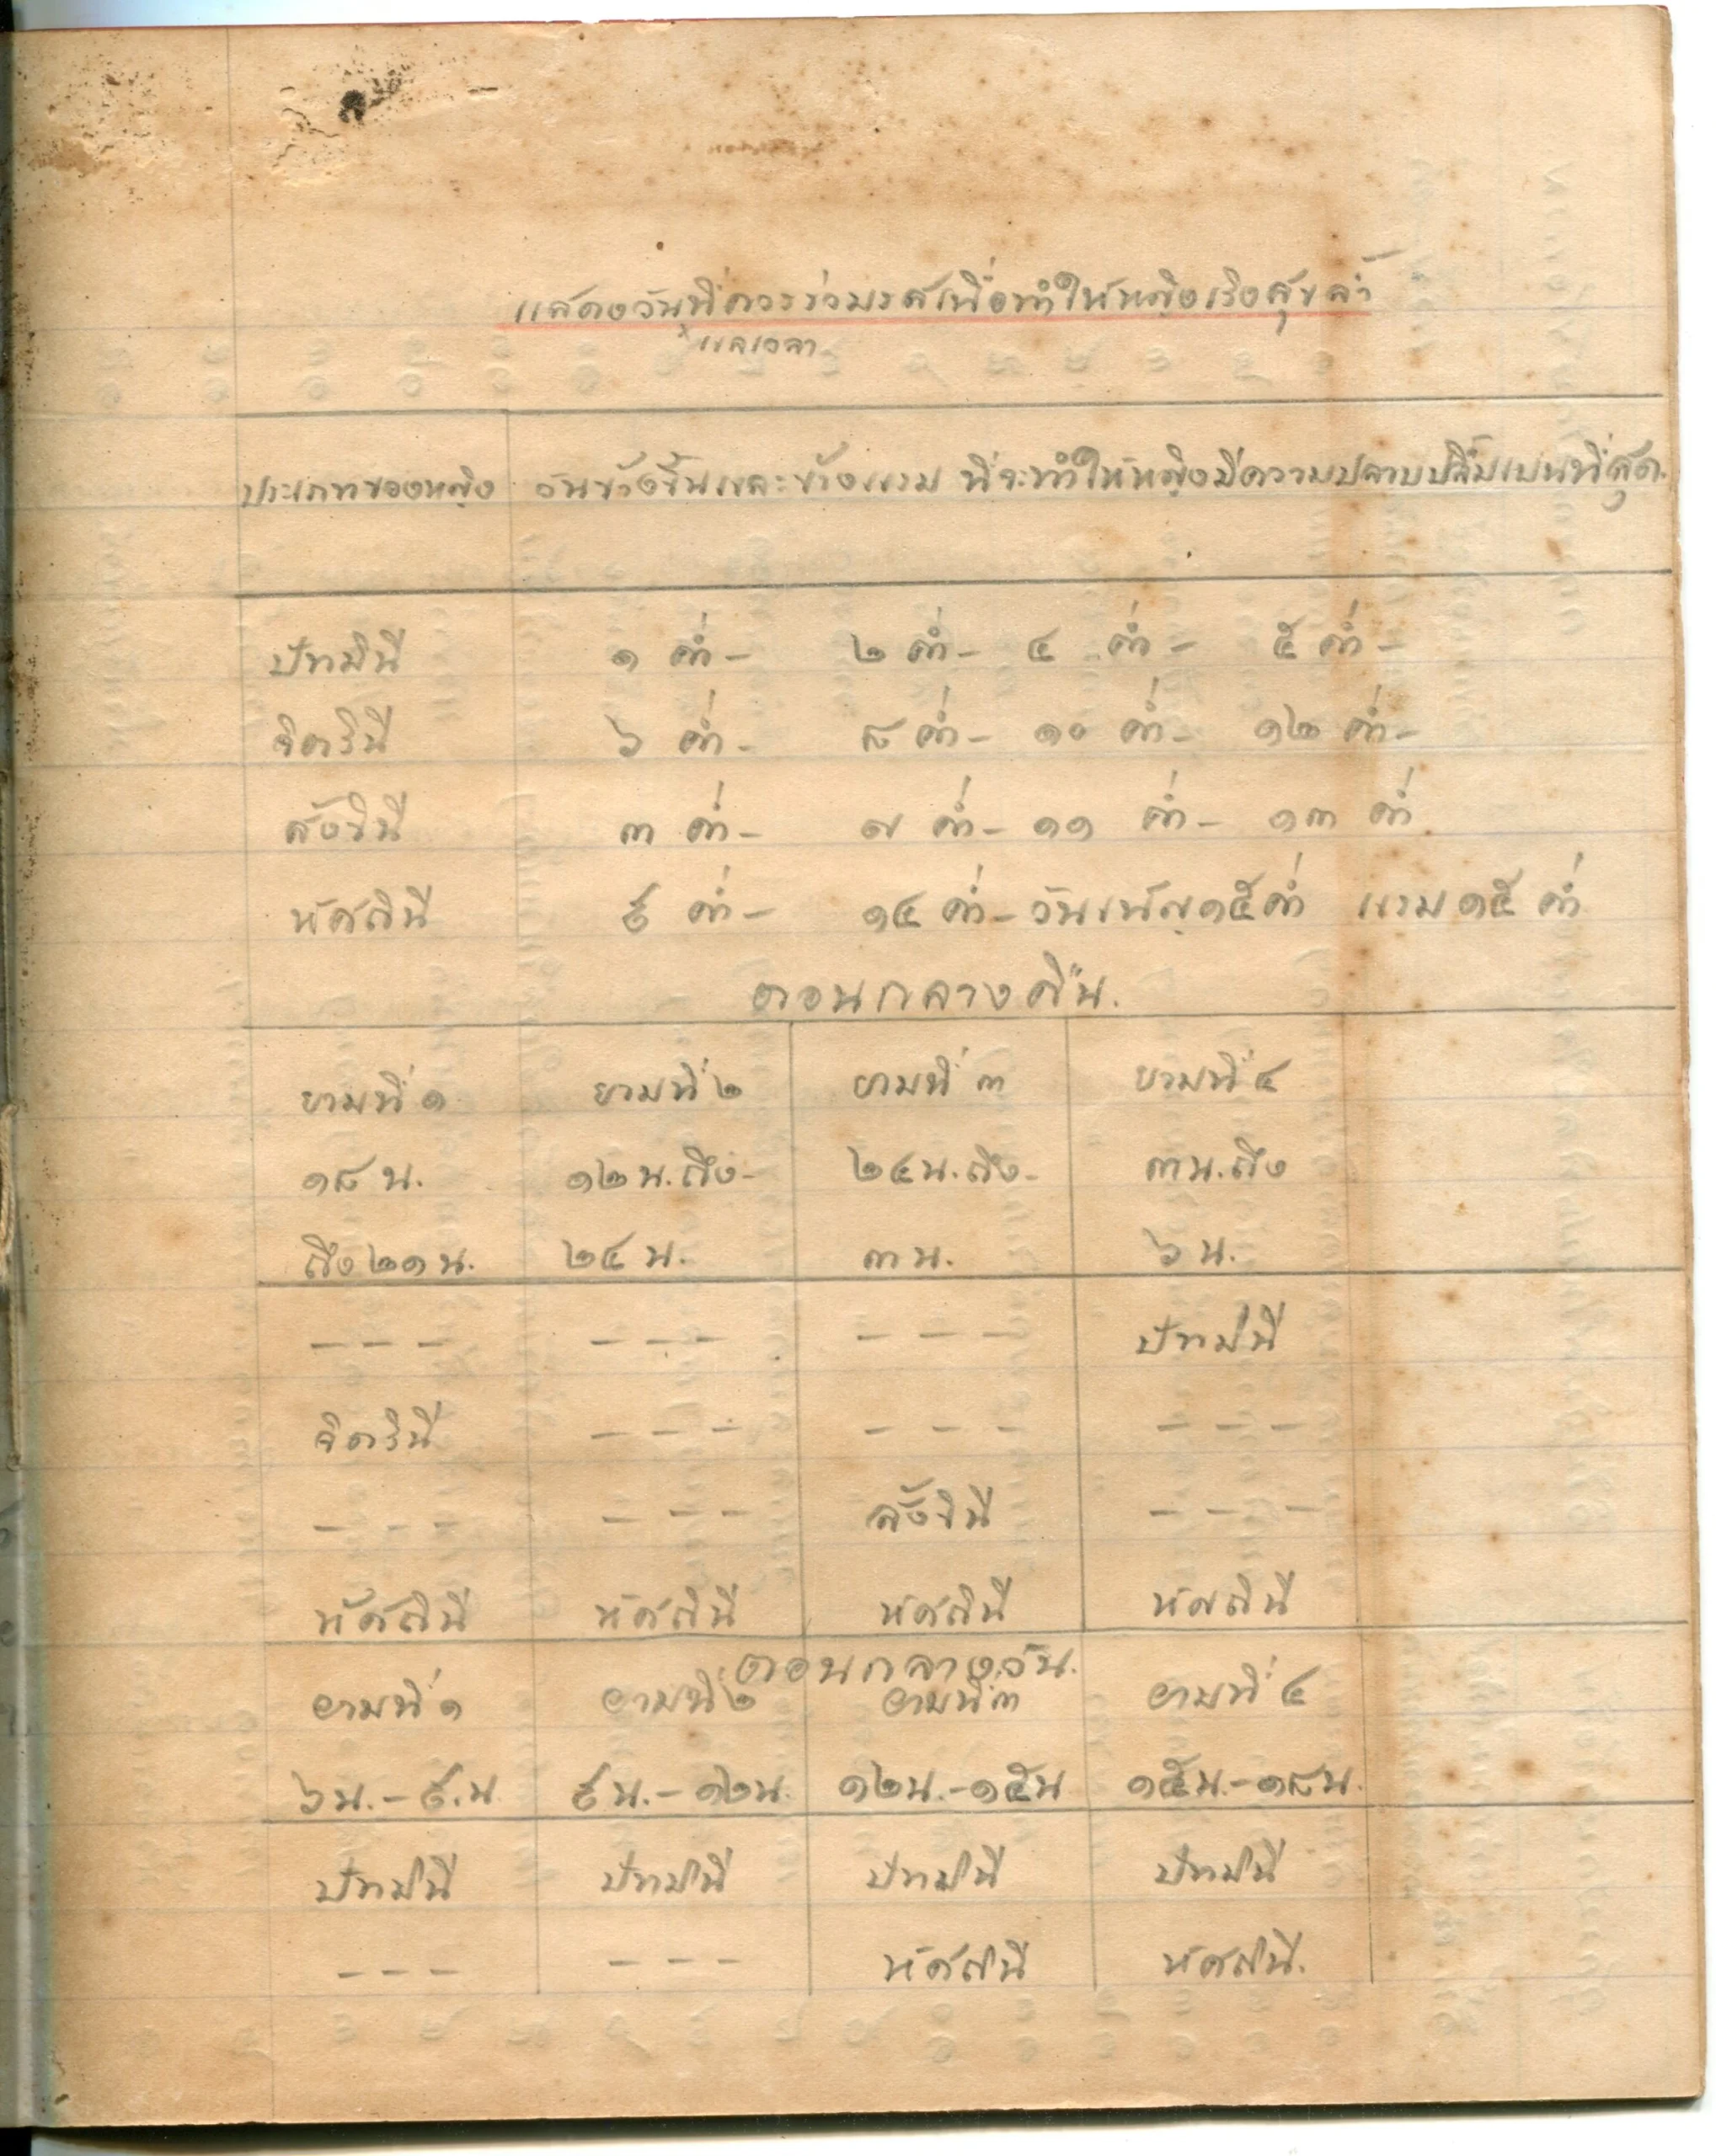 แสดงวันที่ควรร่วมรสเพื่อทำให้หญิงเริงสุขล้ำ
แลเวลา
ประเภทของหญิง วันข้างขึ้นและข้างแรม ที่จะทำให้หญิงมีความปลาบปลื้มเปนที่สุด.
ปัทมินี ๑ ค่ำ- ๒ ค่ำ- ๔ ค่ำ- ๕ ค่ำ-
จิตรินี ๖ ค่ำ- ๘ ค่ำ- ๑๐ ค่ำ- ๑๒ ค่ำ-
สังขินี ๓ ค่ำ- ๗ ค่ำ- ๑๑ ค่ำ- ๑๓ ค่ำ
หัศถินี ๙ ค่ำ- ๑๔ ค่ำ- วันเพ็ญ ๑๕ ค่ำ แรม ๑๕ ค่ำ
ตอนกลางคืน.
ยามที่ ๑ ยามที่ ๒ ยามที่ ๓ ยามที่ ๔
๑๘ น. ๑๒ น. ถึง- ๒๔ น. ถึง- ๓ น. ถึง
ถึง ๒๑ น. ๒๔ น. ๓ น. ๖ น.
--- --- --- ปัทมินี
จิตรินี --- --- ---
--- --- สังขินี ---
หัศถินี หัศถินี หัศถินี หัศถินี
ตอนกลางวัน.
ยามที่ ๑ ยามที่ ๒ ยามที่ ๓ ยามที่ ๔
๖ น.-๙.น. ๙ น.-๑๒ น. ๑๒ น.-๑๕ น ๑๕ น.-๑๘ น.
ปัทมินี ปัทมินี ปัทมินี ปัทมินี
--- --- หัศถินี หัศถินี.